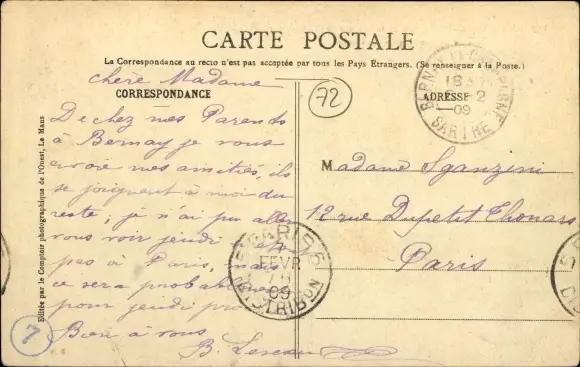 CARTE POSTALE
La Correspondance au recto n'est pas acceptée par tous les Pays Étrangers. (Se renseigner à la Poste.)
CORRESPONDANCE
ADRESSE
Chère Madame
De chez mes Parents
à Bernay je vous
envoie mes amitiés, ils
se joignent à moi du
reste; je n'ai pu aller
vous voir jeudi
pas à Paris, mais
ce sera probablement
pour jeudi pro
Bien à vous
B.
72
7
Madame Sganzini
12 rue Dupetit Thouars
Paris
18
2
09
SARTHE
PARIS
7
FEVR
09
DISTRIBON
Editée par le Comptoir photographique de l'Ouest, Le Mans